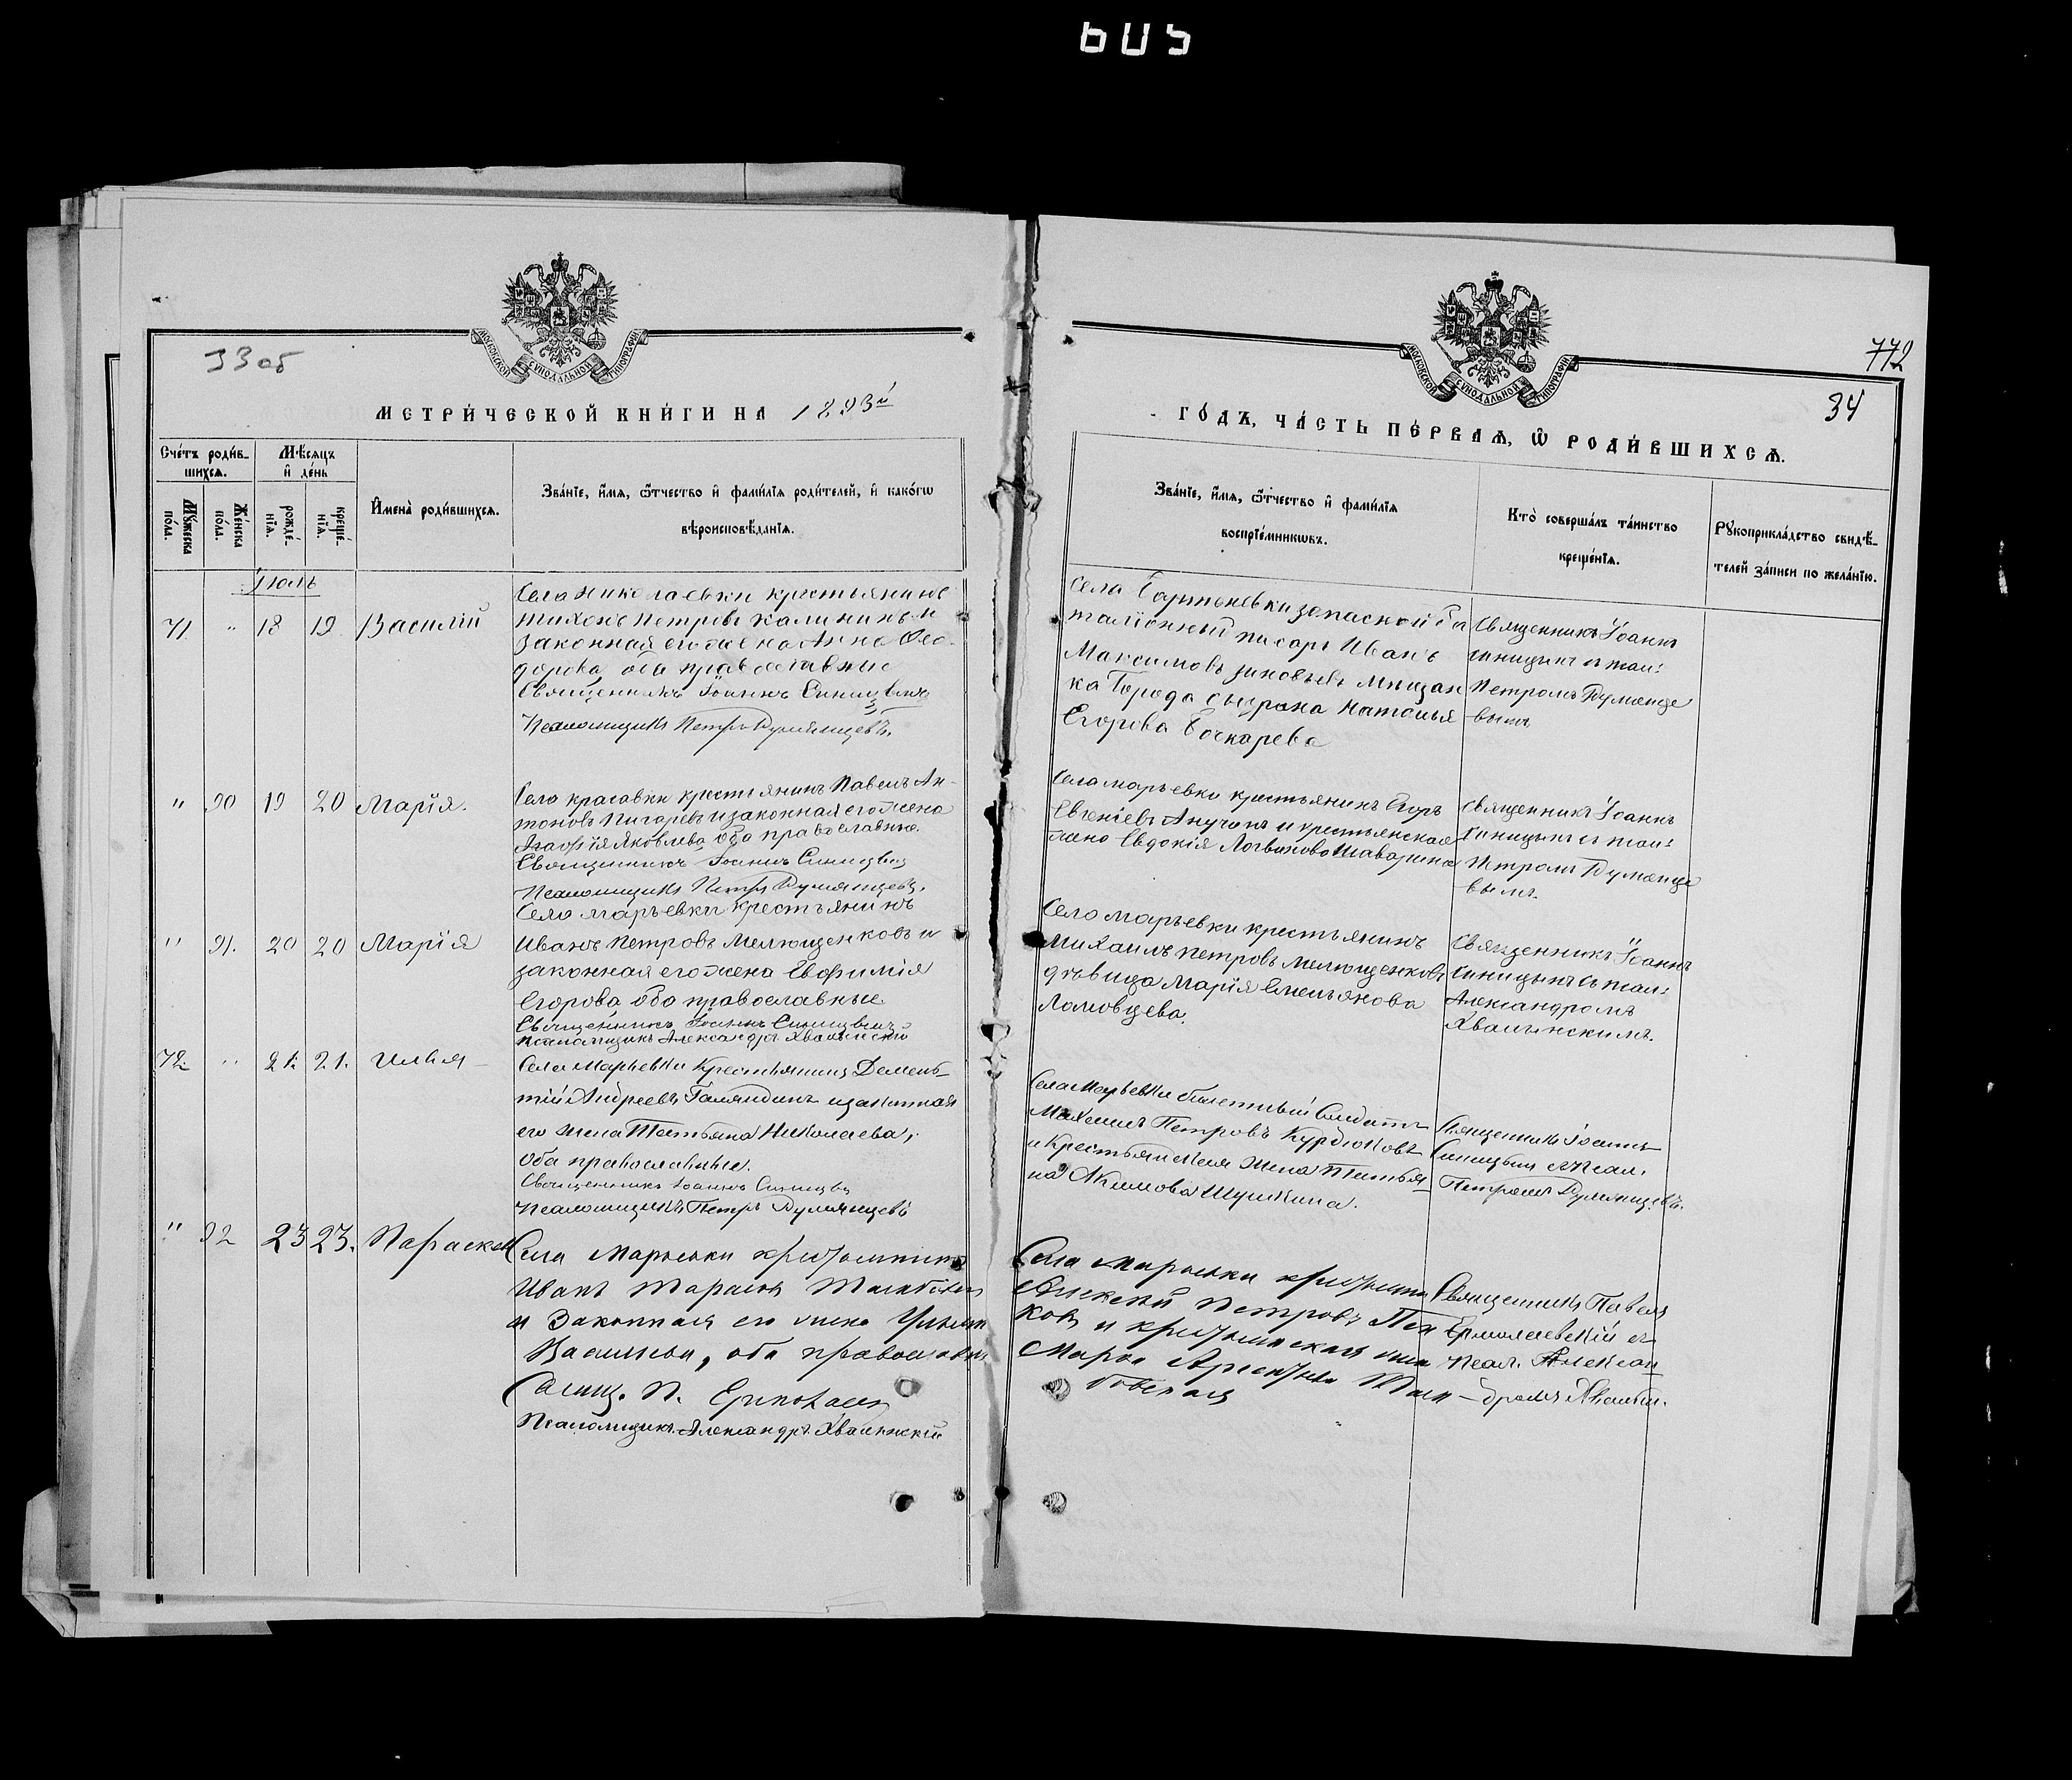 605
33 об
772
34
МОСКОВСКОЙ СѴНОДАЛЬНОЙ ТИПОГРАФІИ
МЕТРИ́ЧЕСКОЙ КНИ́ГИ НА 1893й
МОСКОВСКОЙ СѴНОДАЛЬНОЙ ТИПОГРАФІИ
ГО́ДЪ, ЧА́СТЬ ПЕ́РВАѦ, Ѡ РОДИ́ВШИХСѦ.
Счéтъ роди́в-
шихсѧ.
Мꙋ́жеска
по́ла.
Же́нска
по́ла.
Мѣ́сѧцъ
и҆ де́нь
рожде́-
нїѧ.
креще́-
нїѧ.
И҆мена̀ роди́вшихсѧ.
Зва́нїе, и҆́мѧ, ѻ҆́тчество и҆ фами́лїѧ роди́телей, и҆ како́гѡ
вѣроисповѣ́данїѧ.
Зва́нїе, и҆́мѧ, ѻ҆́тчество и҆ фами́лїѧ
воспрїе́мникѡвъ.
Кто̀ соверша́лъ та́инство
креще́нїѧ.
Рꙋкоприкла́дство свидѣ́-
телей за́писи по жела́нїю.
Іюль
71. " 18 19 Василій
Села Николаевки крестьянинъ
Тихонъ Петровъ Калининъ и
законная его жена Анна Ѳео-
дорова, оба православные
Священникъ Іоаннъ Синицынъ
Псаломщикъ Петръ Румянцевъ.
Села запасной ба
таліонный писарь Иванъ
Максимовъ Зиновьевъ мещан
ка Города Сызрана Наталья
Егорова Бочкарева
Священникъ Іоаннъ
Синицынъ съ псал:
Петромъ Румянце
вымъ
" 90 19 20 Марія.
Села Красавки крестьянинъ Павелъ Ан-
тоновъ Пигаревъ и законная его жена
Яковлева, оба православные.
Священникъ Іоаннъ Синицынъ
Псаломщикъ Петръ Румянцевъ.
Села Марьевки крестьянинъ Егоръ
и крестьянская
жена Евдокія
Священникъ Іоаннъ
Синицынъ съ псал:
Петромъ Румянце
вымъ.
" 91. 20 20 Марія
Села Марьевки крестьянинъ
Иванъ Петровъ Мелющенковъ и
законная его жена Евфимія
Егорова, оба православные
Священникъ Іоаннъ Синицынъ
Псаломщикъ Александръ Хвалынскій
Села Марьевки крестьянинъ
Михаилъ Петровъ Мелющенковъ
дѣвица Марія Емельянова
Ломовцева.
Священникъ Іоаннъ
Синицынъ съ псал:
Александромъ
Хвалынскимъ.
72. " 21. 21. Илья
Села Марьевки Крестьянинъ Демен-
тій Андреевъ Галяндинъ и законная
его жена Татьяна Николаева,
оба православные.
Священникъ Іоаннъ Синицынъ
Псаломщикъ Петръ Румянцевъ
Села Марьевки билетный Солдатъ
Михаилъ Петровъ Курдюковъ
и Крестьянская жена Татья-
на Акимова Шушкина.
Священникъ Іоаннъ
Синицынъ съ псал.
Петромъ Румянцевъ.
" 92 23 23. Параскев
Села Марьевки крестьянинъ
Иванъ Тарасовъ
и законная его жена
Васильева, оба православн
Свящ. П. Ермолаев
Псаломщикъ Александръ Хвалынскій
Села Марьевки крестьянин
Алексѣй Петровъ Пол
ковъ и крестьянская жена
Марѳа
Священникъ Павелъ
Ермолаевскій съ
псал. Алексан
-дромъ Хвалын.